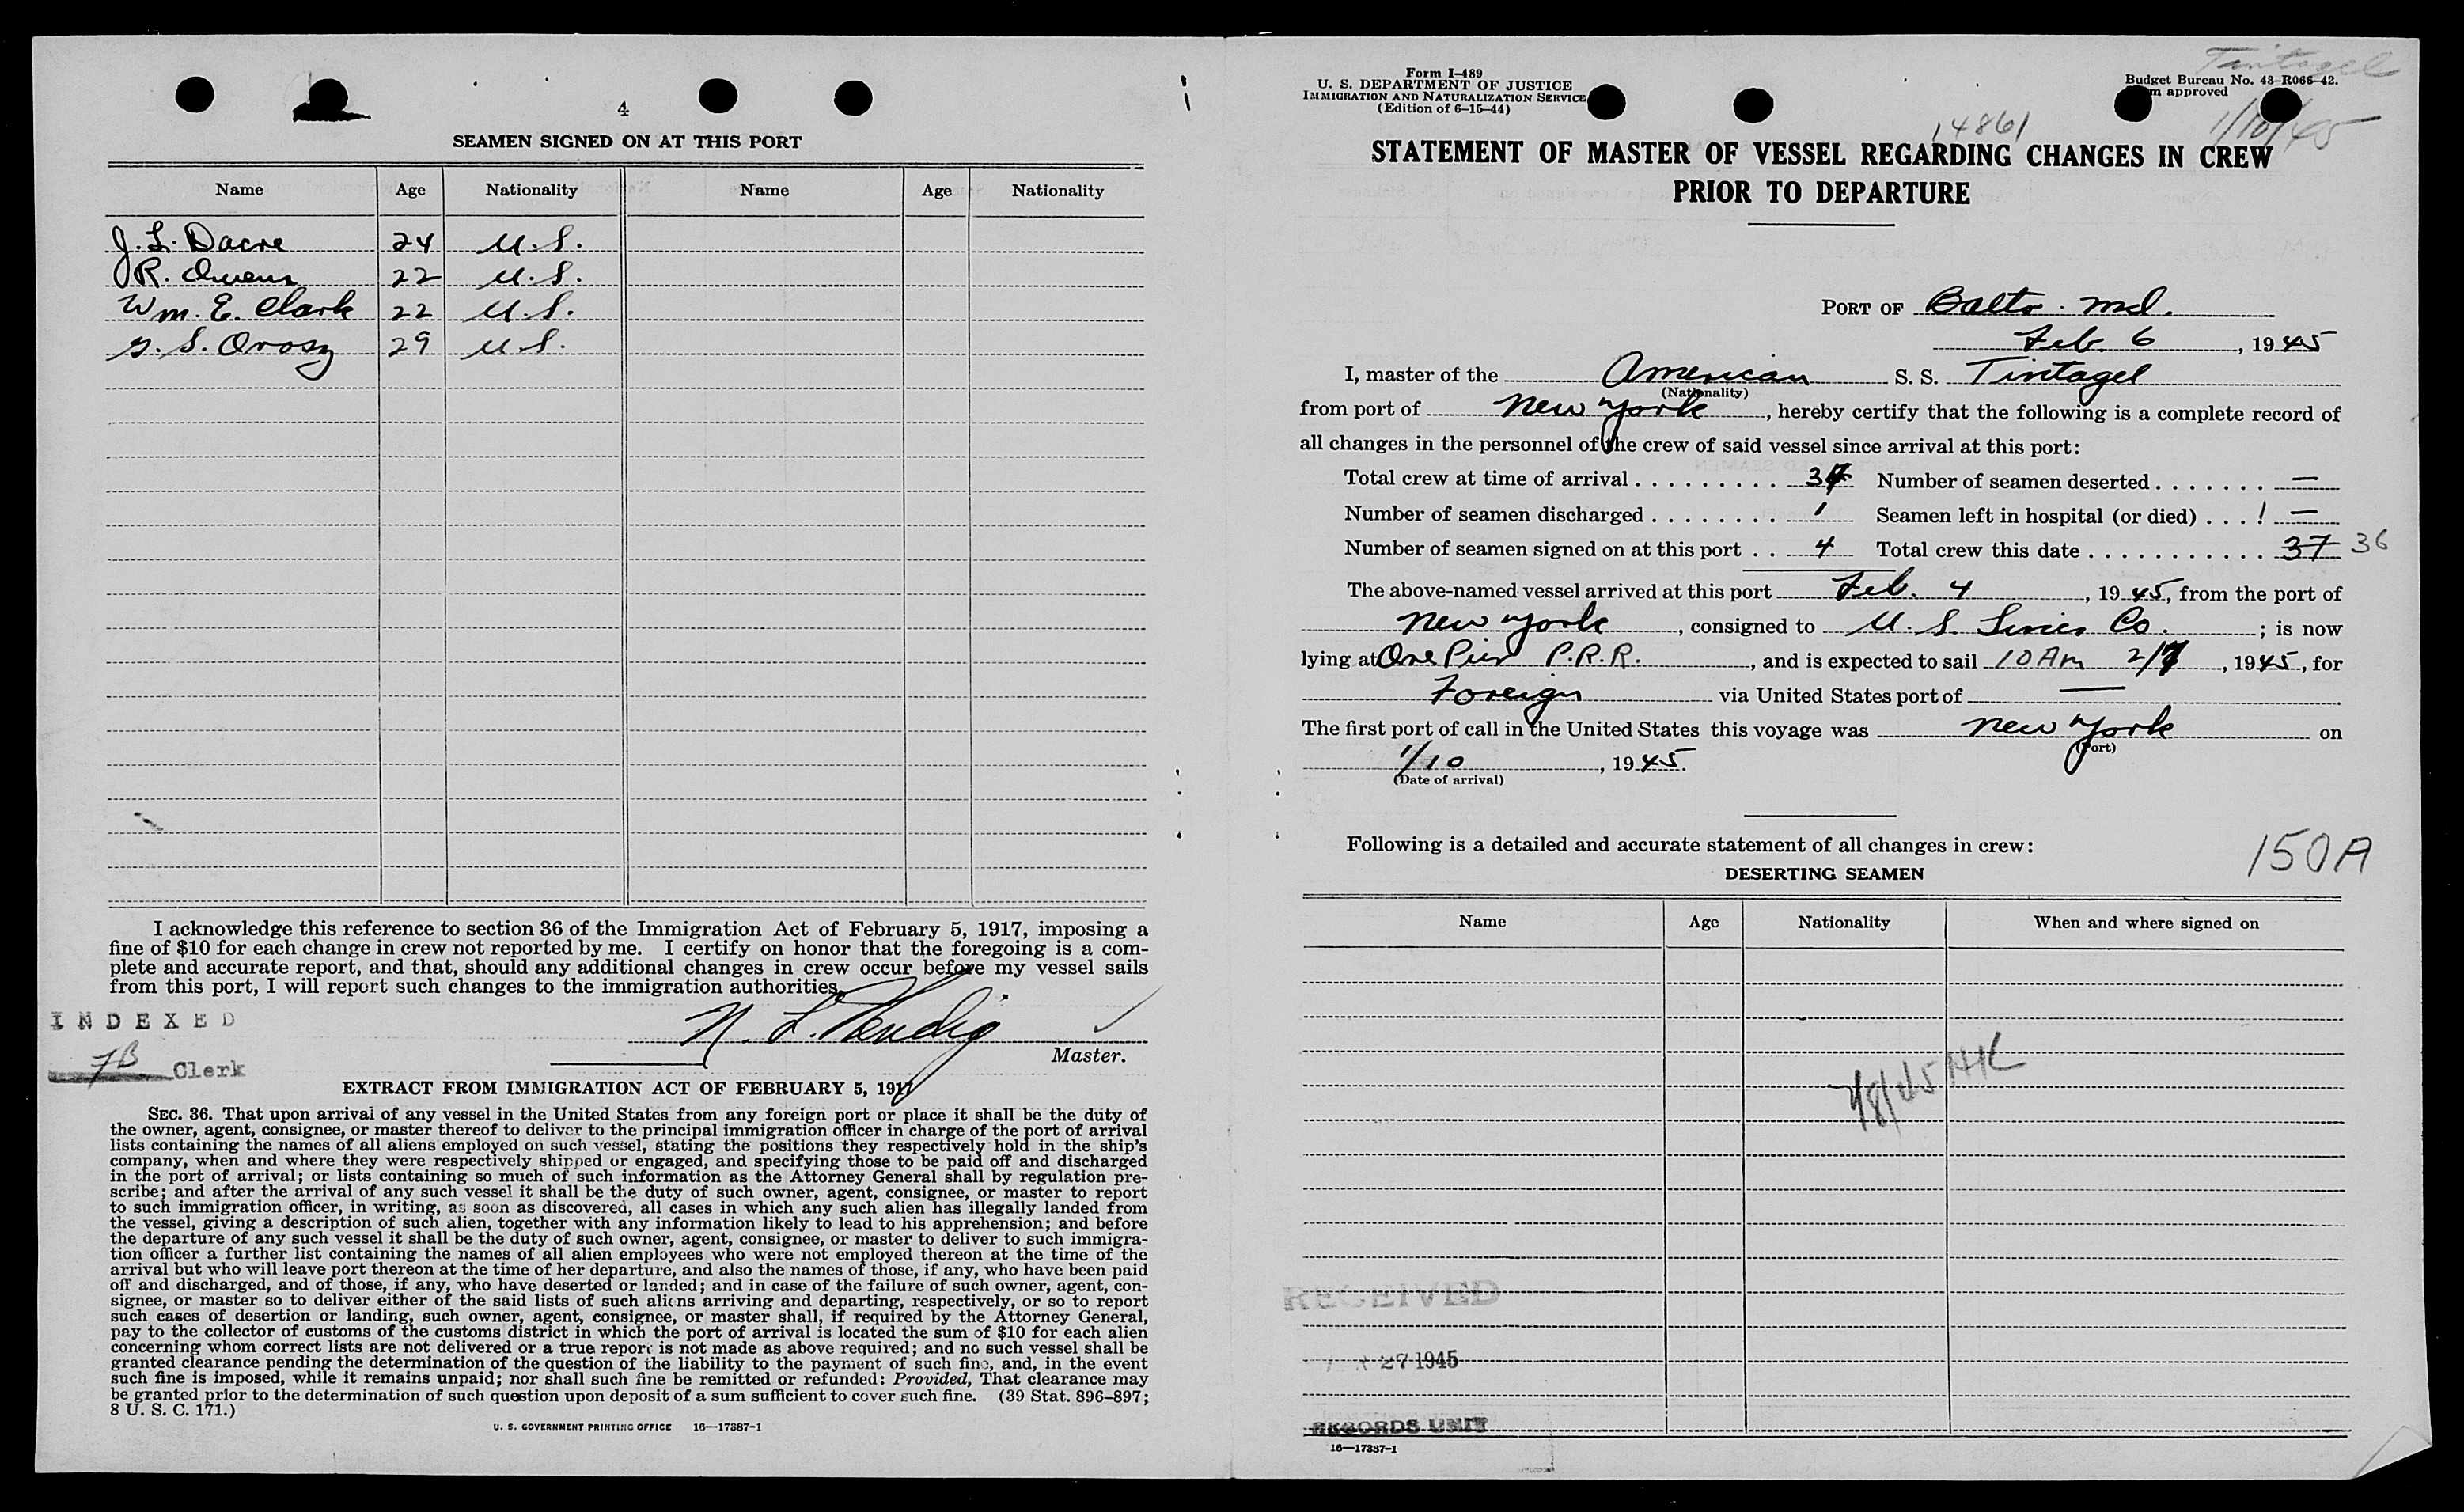 4
SEAMEN SIGNED ON AT THIS PORT
Name Age Nationality Name Age Nationality
J. L. Dacre 24 U.S.
R. Owens 22 U.S.
Wm. E. Clark 22 U.S.
G. S. Orosz 29 U.S.
I acknowledge this reference to section 36 of the Immigration Act of February 5, 1917, imposing a
fine of $10 for each change in crew not reported by me. I certify on honor that the foregoing is a com-
plete and accurate report, and that, should any additional changes in crew occur before my vessel sails
from this port, I will report such changes to the immigration authorities.
INDEXED
N. L.
Master.
JB Clerk
EXTRACT FROM IMMIGRATION ACT OF FEBRUARY 5, 1917
SEC. 36. That upon arrival of any vessel in the United States from any foreign port or place it shall be the duty of
the owner, agent, consignee, or master thereof to deliver to the principal immigration officer in charge of the port of arrival
lists containing the names of all aliens employed on such vessel, stating the positions they respectively hold in the ship's
company, when and where they were respectively shipped or engaged, and specifying those to be paid off and discharged
in the port of arrival; or lists containing so much of such information as the Attorney General shall by regulation pre-
scribe; and after the arrival of any such vessel it shall be the duty of such owner, agent, consignee, or master to report
to such immigration officer, in writing, as soon as discovered, all cases in which any such alien has illegally landed from
the vessel, giving a description of such alien, together with any information likely to lead to his apprehension; and before
the departure of any such vessel it shall be the duty of such owner, agent, consignee, or master to deliver to such immigra-
tion officer a further list containing the names of all alien employees who were not employed thereon at the time of the
arrival but who will leave port thereon at the time of her departure, and also the names of those, if any, who have been paid
off and discharged, and of those, if any, who have deserted or landed; and in case of the failure of such owner, agent, con-
signee, or master so to deliver either of the said lists of such aliens arriving and departing, respectively, or so to report
such cases of desertion or landing, such owner, agent, consignee, or master shall, if required by the Attorney General,
pay to the collector of customs of the customs district in which the port of arrival is located the sum of $10 for each alien
concerning whom correct lists are not delivered or a true report is not made as above required; and no such vessel shall be
granted clearance pending the determination of the question of the liability to the payment of such fine, and, in the event
such fine is imposed, while it remains unpaid; nor shall such fine be remitted or refunded: Provided, That clearance may
be granted prior to the determination of such question upon deposit of a sum sufficient to cover such fine. (39 Stat. 896–897;
8 U. S. C. 171.)
U. S. GOVERNMENT PRINTING OFFICE 16—17387-1
Form I-489
U. S. DEPARTMENT OF JUSTICE
IMMIGRATION AND NATURALIZATION SERVICE
(Edition of 6-15-44)
Tintagel
Budget Bureau No. 43-R066-42.
approved
1/10/45
14861
STATEMENT OF MASTER OF VESSEL REGARDING CHANGES IN CREW
PRIOR TO DEPARTURE
PORT OF Balto. Md.
Feb. 6, 1945
I, master of the American S. S. Tintagel
(Nationality)
from port of New York, hereby certify that the following is a complete record of
all changes in the personnel of the crew of said vessel since arrival at this port:
Total crew at time of arrival . . . . . . . . . . 34 Number of seamen deserted . . . . . . . —
Number of seamen discharged . . . . . . . . 1 Seamen left in hospital (or died) . . . ! —
Number of seamen signed on at this port . . 4 Total crew this date . . . . . . . . . . . . 37 36
The above-named vessel arrived at this port Feb. 4, 1945, from the port of
New York, consigned to U. S. Lines Co.; is now
lying at Ore Pier P.R.R., and is expected to sail 10 AM 2/7, 1945, for
Foreign via United States port of —
The first port of call in the United States this voyage was New York on
(Port)
1/10, 1945.
(Date of arrival)
Following is a detailed and accurate statement of all changes in crew:
150A
DESERTING SEAMEN
Name Age Nationality When and where signed on
RECEIVED
27 1945
RECORDS UNIT
16—17387-1